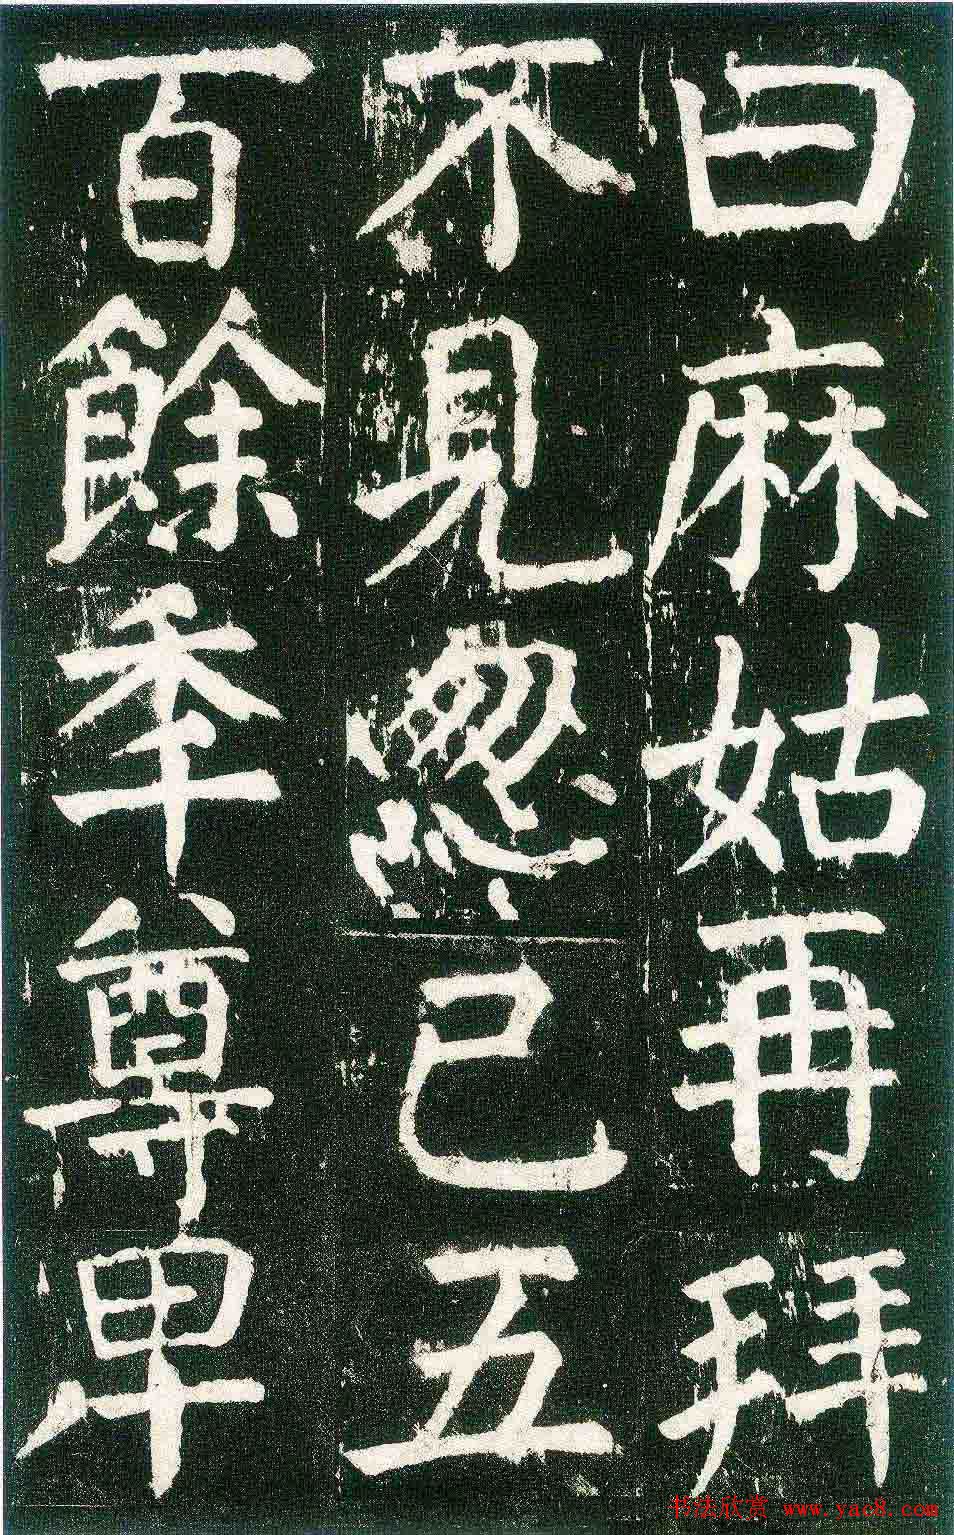 曰麻姑再拜
不見忽已五
百餘秊尊卑
书法欣赏 www.yac8.com